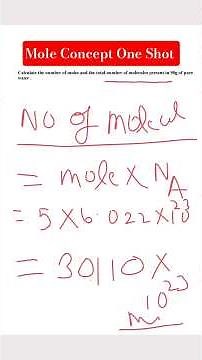 Mole Concept One Shot
Calculate the number of moles and the total number of molecules present in 90g of pure
water .
NO of molecul
= mole X NA
= 5 X 6.022 X 10²³
= 30110 X
10²³